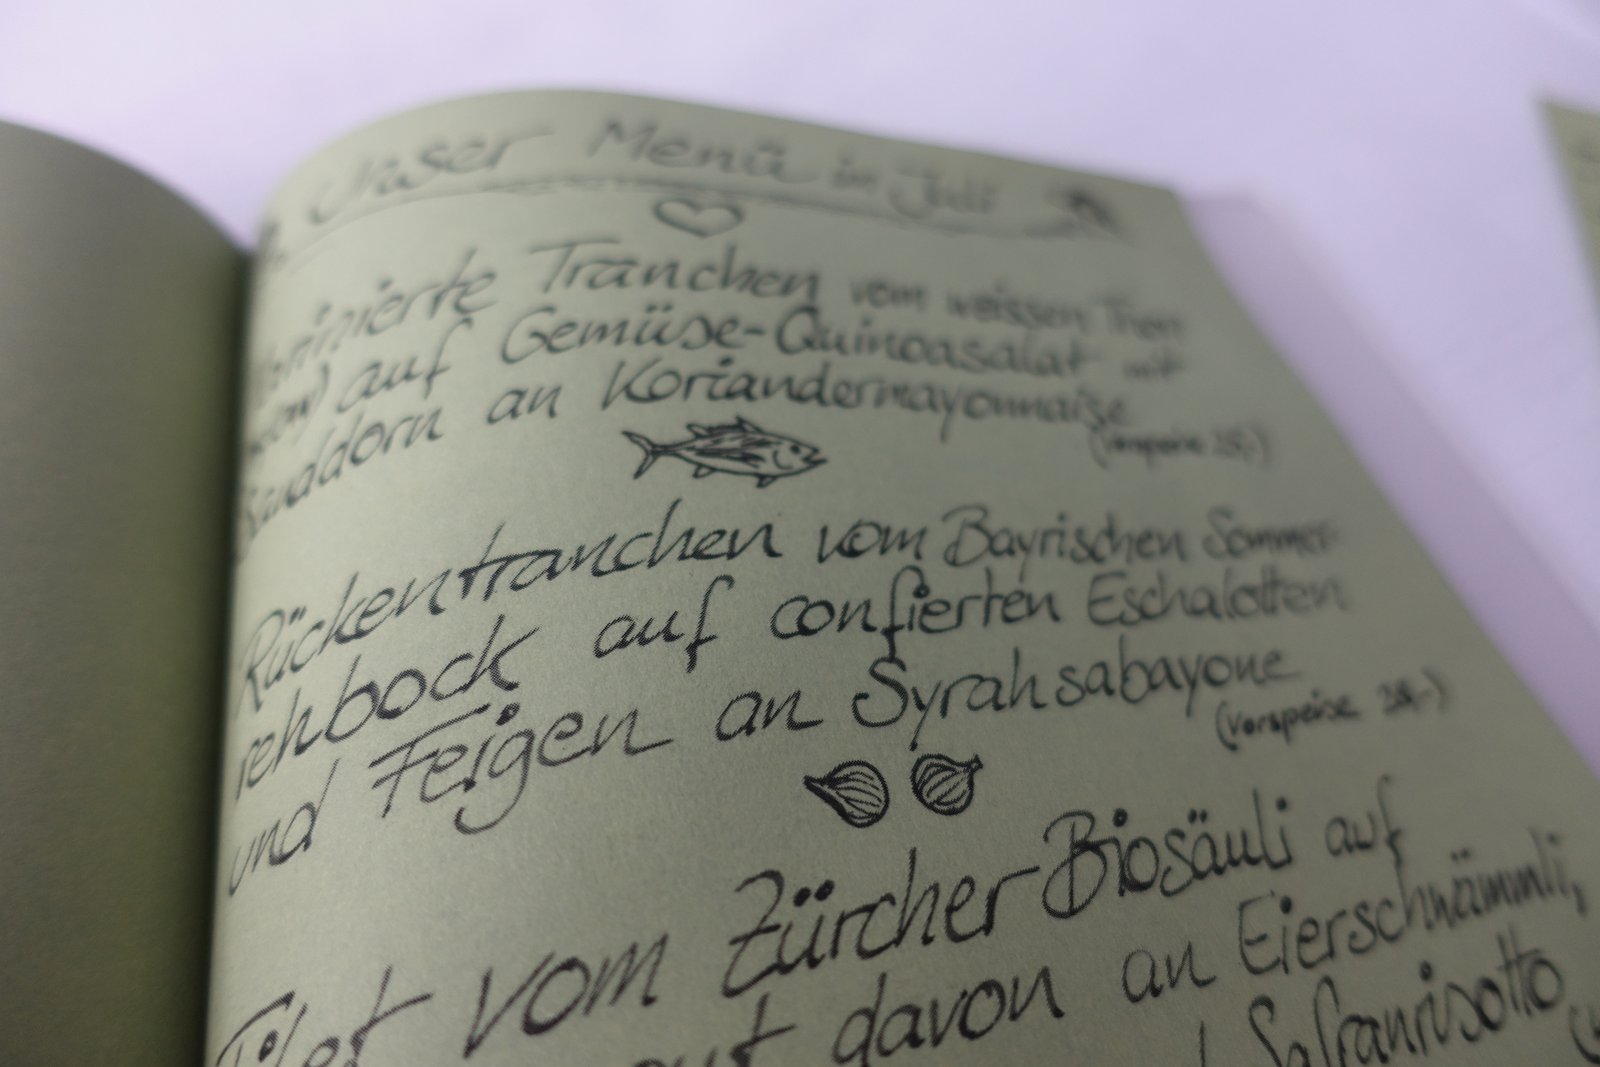 Unser Menü in Juli
Tranchen vom weissen Thon
auf Gemüse-Quinoasalat mit
Sanddorn an Koriandermayonnaise
(Vorspeise
Rückentranchen vom Bayrischen Sommer-
rehbock auf confierten Eschalotten
und Feigen an Syrahsabayone
(Vorspeise
Filet vom Zürcher Biosäuli auf
davon an Eierschwämmli,
Safranrisotto